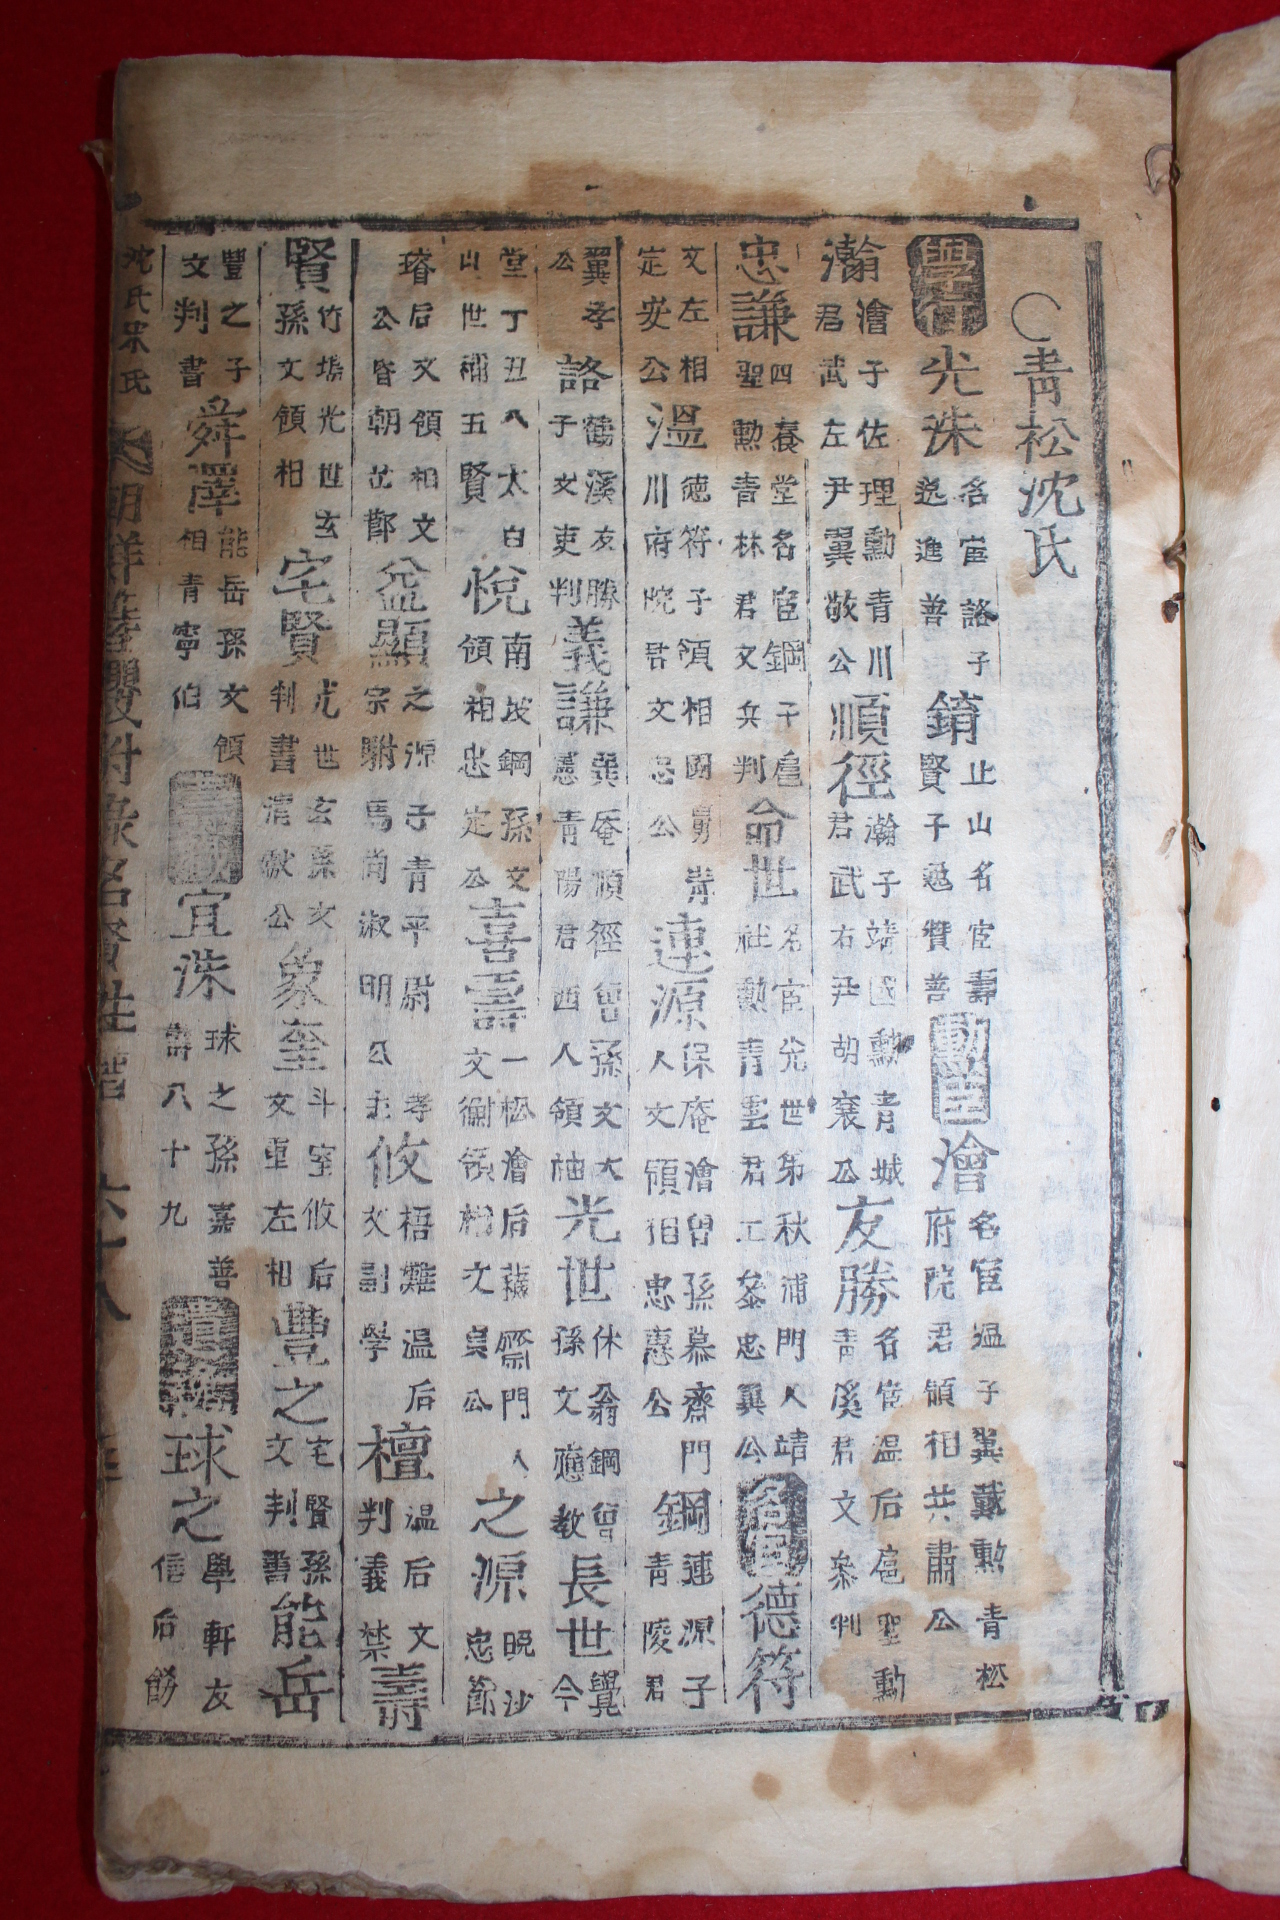 ○青松沈氏
學行 光洙 名宦詻子逸進善 錥 止山名宦壽賢子逸贊善 勳臣 澮 名宦温子翼戴勳青松府院君領相恭肅公
瀚 澮子佐理勳青川君武左尹翼敬公 順徑 瀚子靖國勳青城君武右尹胡襄公 友勝 名宦温后扈聖勳青溪君文參判
忠謙 四養堂名宦鋼子扈聖勳青林君文兵判 命世 名宦光世弟秋浦門人靖社勳青雲君工參忠翼公 名宦 德符
文左相定安公 温 德符子領相國舅青川府院君文安公 連源 保庵澮曾孫慕齋門人文領相忠惠公 鋼 連源子青陵君
翼孝公 詻 鶴溪友勝子文吏判 義謙 巽庵順徑曾孫文大憲青陽君西人領袖 光世 休翁鋼曾孫文應教 長世 覺今
堂丁丑八太白山世補五賢 悅 南坡鋼孫文領相忠定公 喜壽 一松澮后蘇齋門人文衡領相文貞公 之源 晩沙忠節
璿后文領相文公昏朝 益顯 之源子青平尉孝宗駙馬尚淑明公主 攸 梧灘温后文副學 檀 温后文判義禁 壽
賢 竹塢光世玄孫文領相 宅賢 光世玄孫文判書清獻公 象奎 斗室攸后文衡左相 豊之 宅賢孫文判書 能岳
豐之子文判書 舜澤 能岳孫文領相青寧伯 宜洙 球之孫嘉善壽八十九 球之 學軒友信后
沈氏宋氏 朝鮮 附錄名賢 六十八